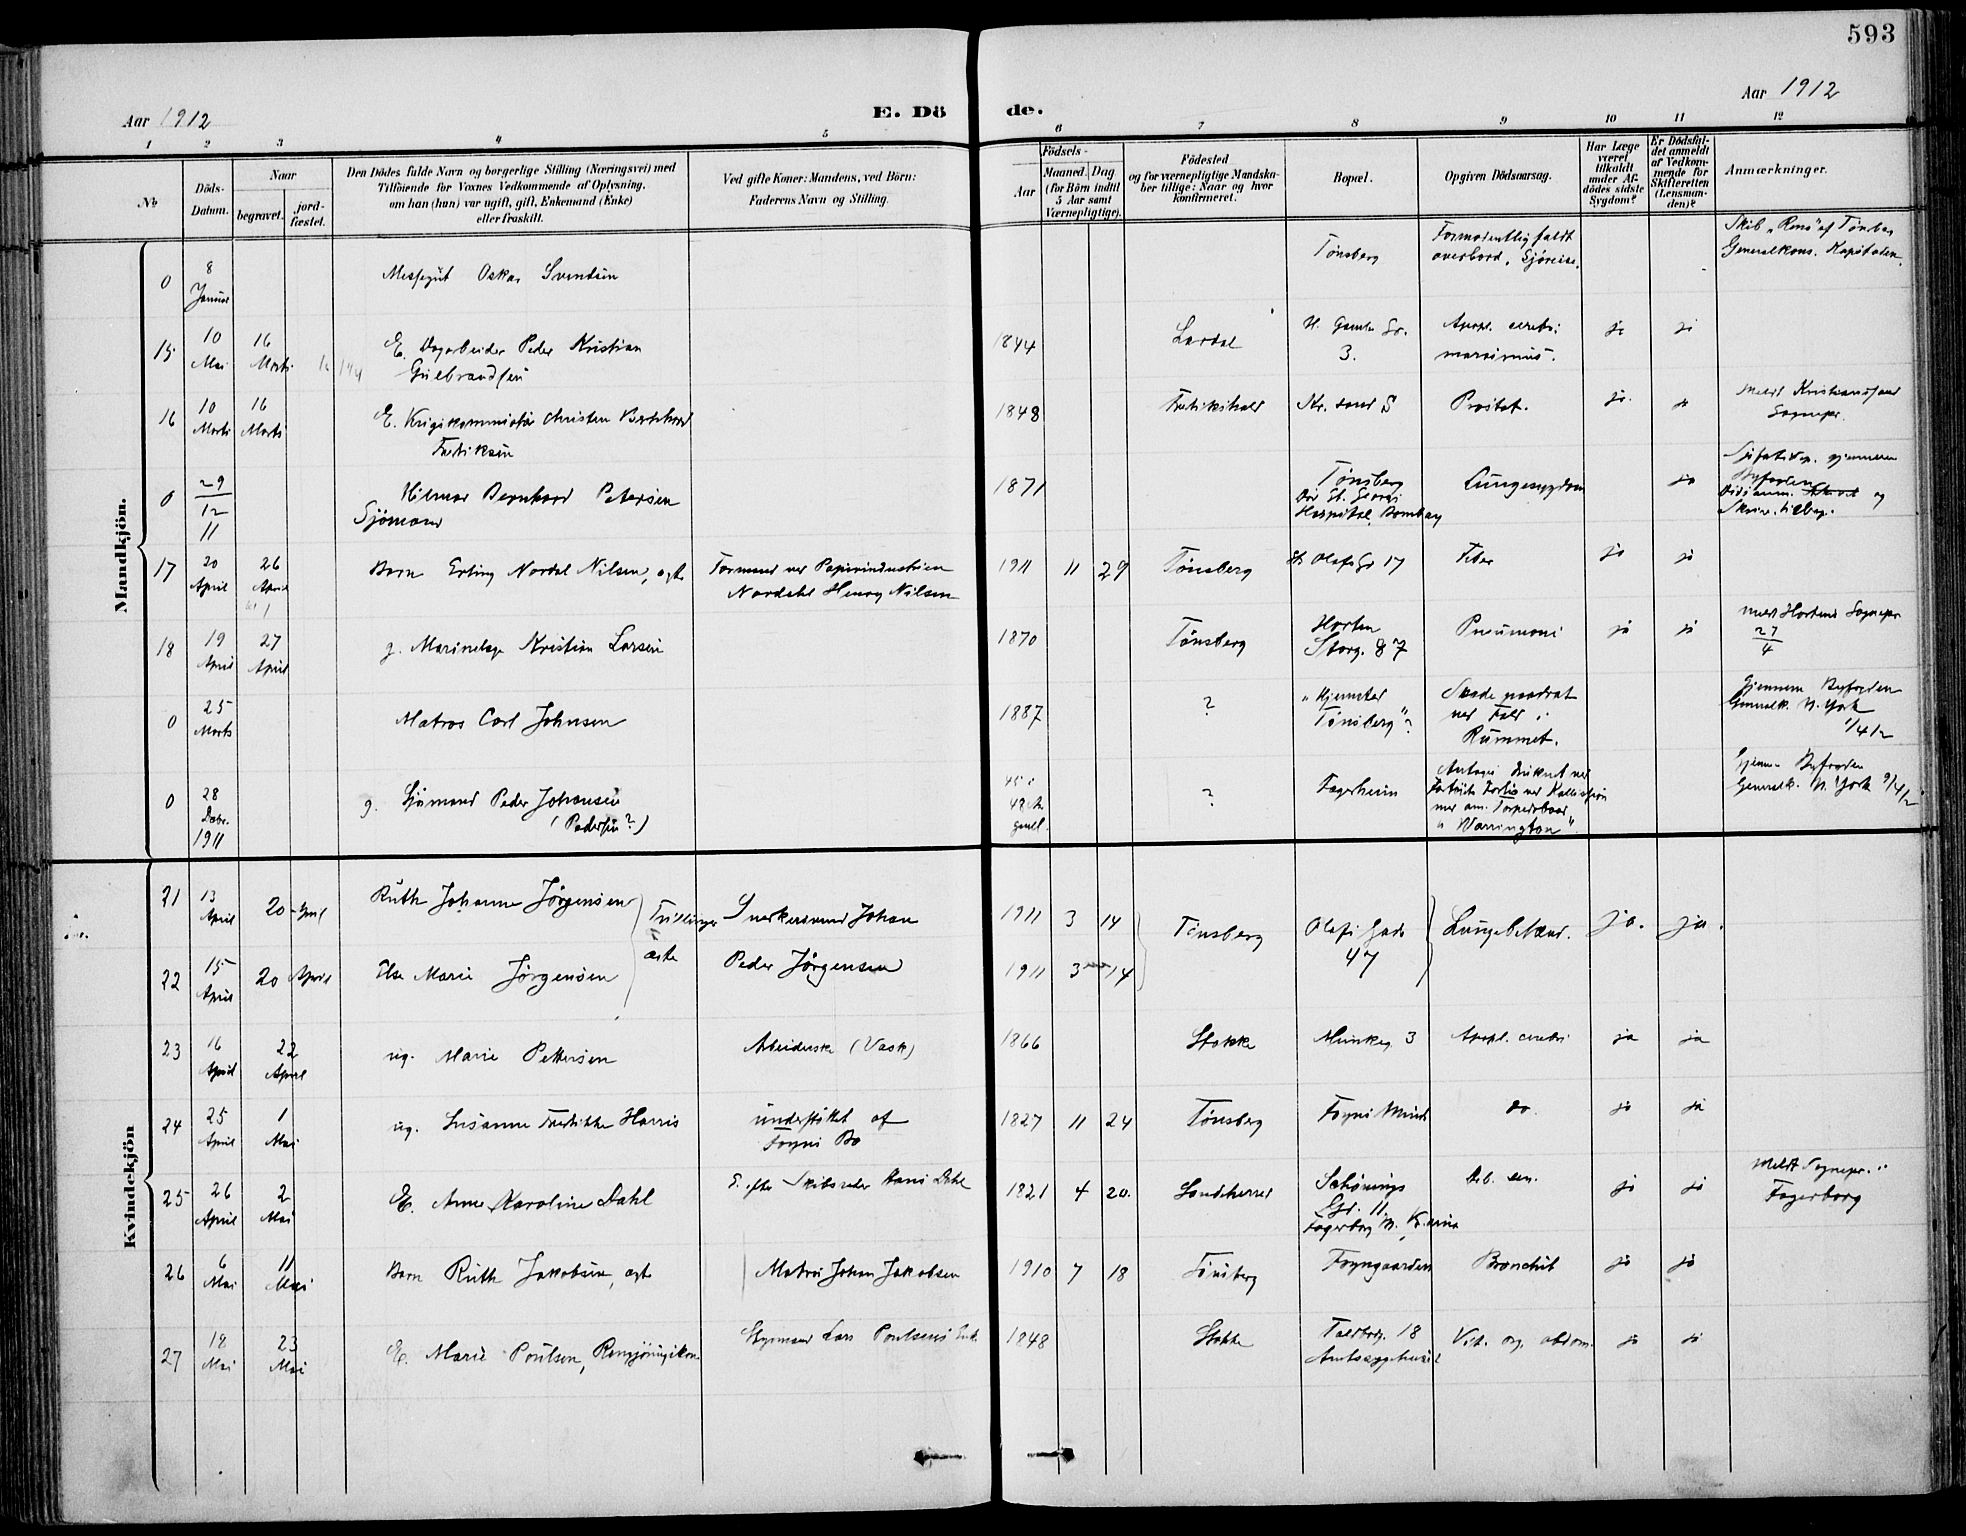 593
Aar 1912
E. Dö
de.
Aar 1912
1 2 3 4 5 6 7 8 9 10 11 12
No
Döds-
Datum.
Naar
begravet.
jord-
fæstet.
Den Dödes fulde Navn og borgerlige Stilling (Næringsvei) med
Tilföiende for Voxnes Vedkommende af Oplysning,
om han (hun) var ugift, gift, Enkemand (Enke)
eller fraskilt.
Ved gifte Koner: Mandens, ved Börn:
Faderens Navn og Stilling.
Födsels-
Aar
Maaned.
Dag
(for Börn indtil
5 Aar samt
Værnepligtige).
Födested
og for værnepligtige Mandska-
ber tillige: Naar og hvor
konfirmeret.
Bopæl.
Opgiven Dödsaarsag.
Har Læge
været
tilkaldt
under Af-
dödes sidste
Sygdom?
Er Dödsfal-
det anmeldt
af Vedkom-
mende for
Skifteretten
(Lensman-
den)?
Anmærkninger.
Mandkjön.
0
8
Januar
Messegut Oskar Svendsen
Tønsberg
Formodentlig faldt
overbord, Sjøreise.
Skib "Renö" af Tönsberg
Generalkons. Kapstaden.
15
10
Mai
16
Marts
E. Dagarbeider Peder Kristian
Gulbrandsen
1844
Lardal
3.
Apopl. cerebri
marasmus.
ja
ja
16
10
Marts
16
Marts
E. Krigskommissær Christen Bernhard
Fredriksen
1848
Fredrikshald
Kr. sand S
Prostat.
ja
ja
meldt Kristianssand
Sognepr.
0
29
12
11
Hilmar Bernhard Petersen
Sjömand
1871
Tønsberg
Död St. Georgs
Hospital, Bombay
Lungesygdom
ja
gjennem
Byfogden
og
17
20
April
26
April
Barn Erling Nordal Nilsen, egte
Formand ved Papirindustrien
Nordahl Henry Nilsen
1911 11 29
Tønsberg
St. Olafs Gd 17
Feber
ja
ja
18
19
April
27
April
g. Kristian Larsen
1870
Tönsberg
Horten
Storg. 87
Pneumoni
ja
ja
meldt Hortens Sognepr
27
4
0
25
Marts
Matros Carl Johnsen
1887
?
"Hjemsted
Tönsberg"?
Skade paadrat
ved Fald i
Rummet.
Gjennem Byfogden
Generalk. N. York
1/4 12
0
28
Decbr.
1911
g. Sjömand Peder Johansen
(Pedersen?)
45 à
48 Aar
gaml.
?
Fagerheim
Antages druknet ved
ved Kollission
med am. Torpedobaad
"Warrington"
Gjennem Byfogden
Generalk. N. York 9/4 12
Kvindekjön
21
13
April
20 April
Ruth Johanne Jörgensen
Trillinger
ægte
Snekkersvend Johan
Peder Jörgensen
1911 3 14
Tönsberg
Olafs Gade
47
Lungebetænd.
ja.
ja.
22
15
April
20 April
Else Marie Jörgensen
1911 3 14
23
16
April
22
April
ug. Marie Pettersen
Arbeiderske (Vask)
1866
Stokke
Munkeg. 3
Apopl. cerebri
ja
ja
24
25
April
1
Mai
ug. Susanne Fredrikke Harris
understöttet af
Foyns Bo
1827 11 24
Tönsberg
Foyns Minde
do.
ja
ja
25
26
April
2
Mai
E. Anne Karoline Dahl
E. efter Skibsreder Hans Dahl
1821 4 20.
Sandeherred
Schönings
Gd. 11,
Fagerborg M. Kr.ania
Deb. sen.
ja
ja
meldt Sognepr. i
Fagerborg
26
6
Mai
11
Mai
Barn Ruth Jakobsen, egte
Matros Johan Jakobsen
1910 7 18
Tönsberg
Foyngaarden
Bronchit
ja
ja
27
18
Mai
23
Mai
E. Marie Poulsen, Rengjöringskone
Styrmand Lars Poulsens Enke
1848
Stokke
Farbodg. 18
Amtssygehuset
Vit. org. abdom.
ja
ja